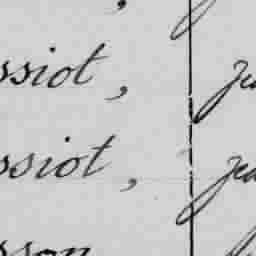 ssiot, je
ssiot, jea
sson